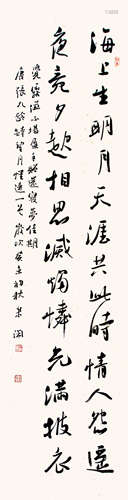 海上生明月天涯共此時情人怨遥
夜竟夕起相思滅燭憐光滿披衣
覺露滋不堪盈手贈還寢夢佳期
唐張九齡詩望月懷遠一首歲次癸未初秋